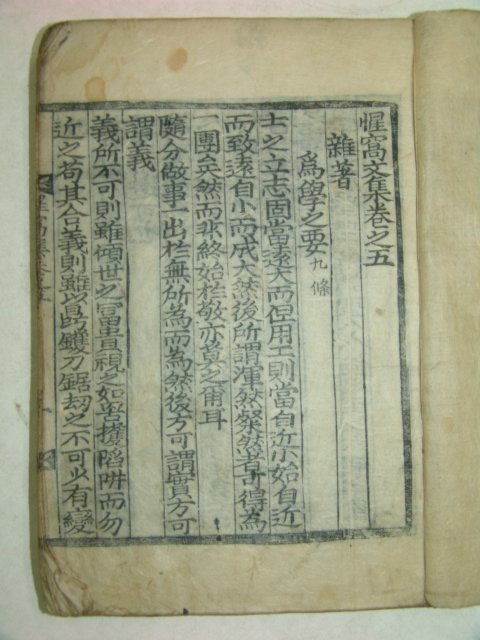 惺窩文集卷之五
雜著
爲學之要 九條
士之立志固當遠大而但用工則當自近小始自近
而致遠自小而成大然後所謂渾然粲然者可得爲
一團矣然而非終始於敬亦莫之有耳
隨分做事一出於無所爲而爲然後方可謂實方可
謂義
義所不可則雖傾世之富貴視之如罟擭陷阱而勿
近之苟其合義則雖以鼎鑊刀鋸劫之不可以有變